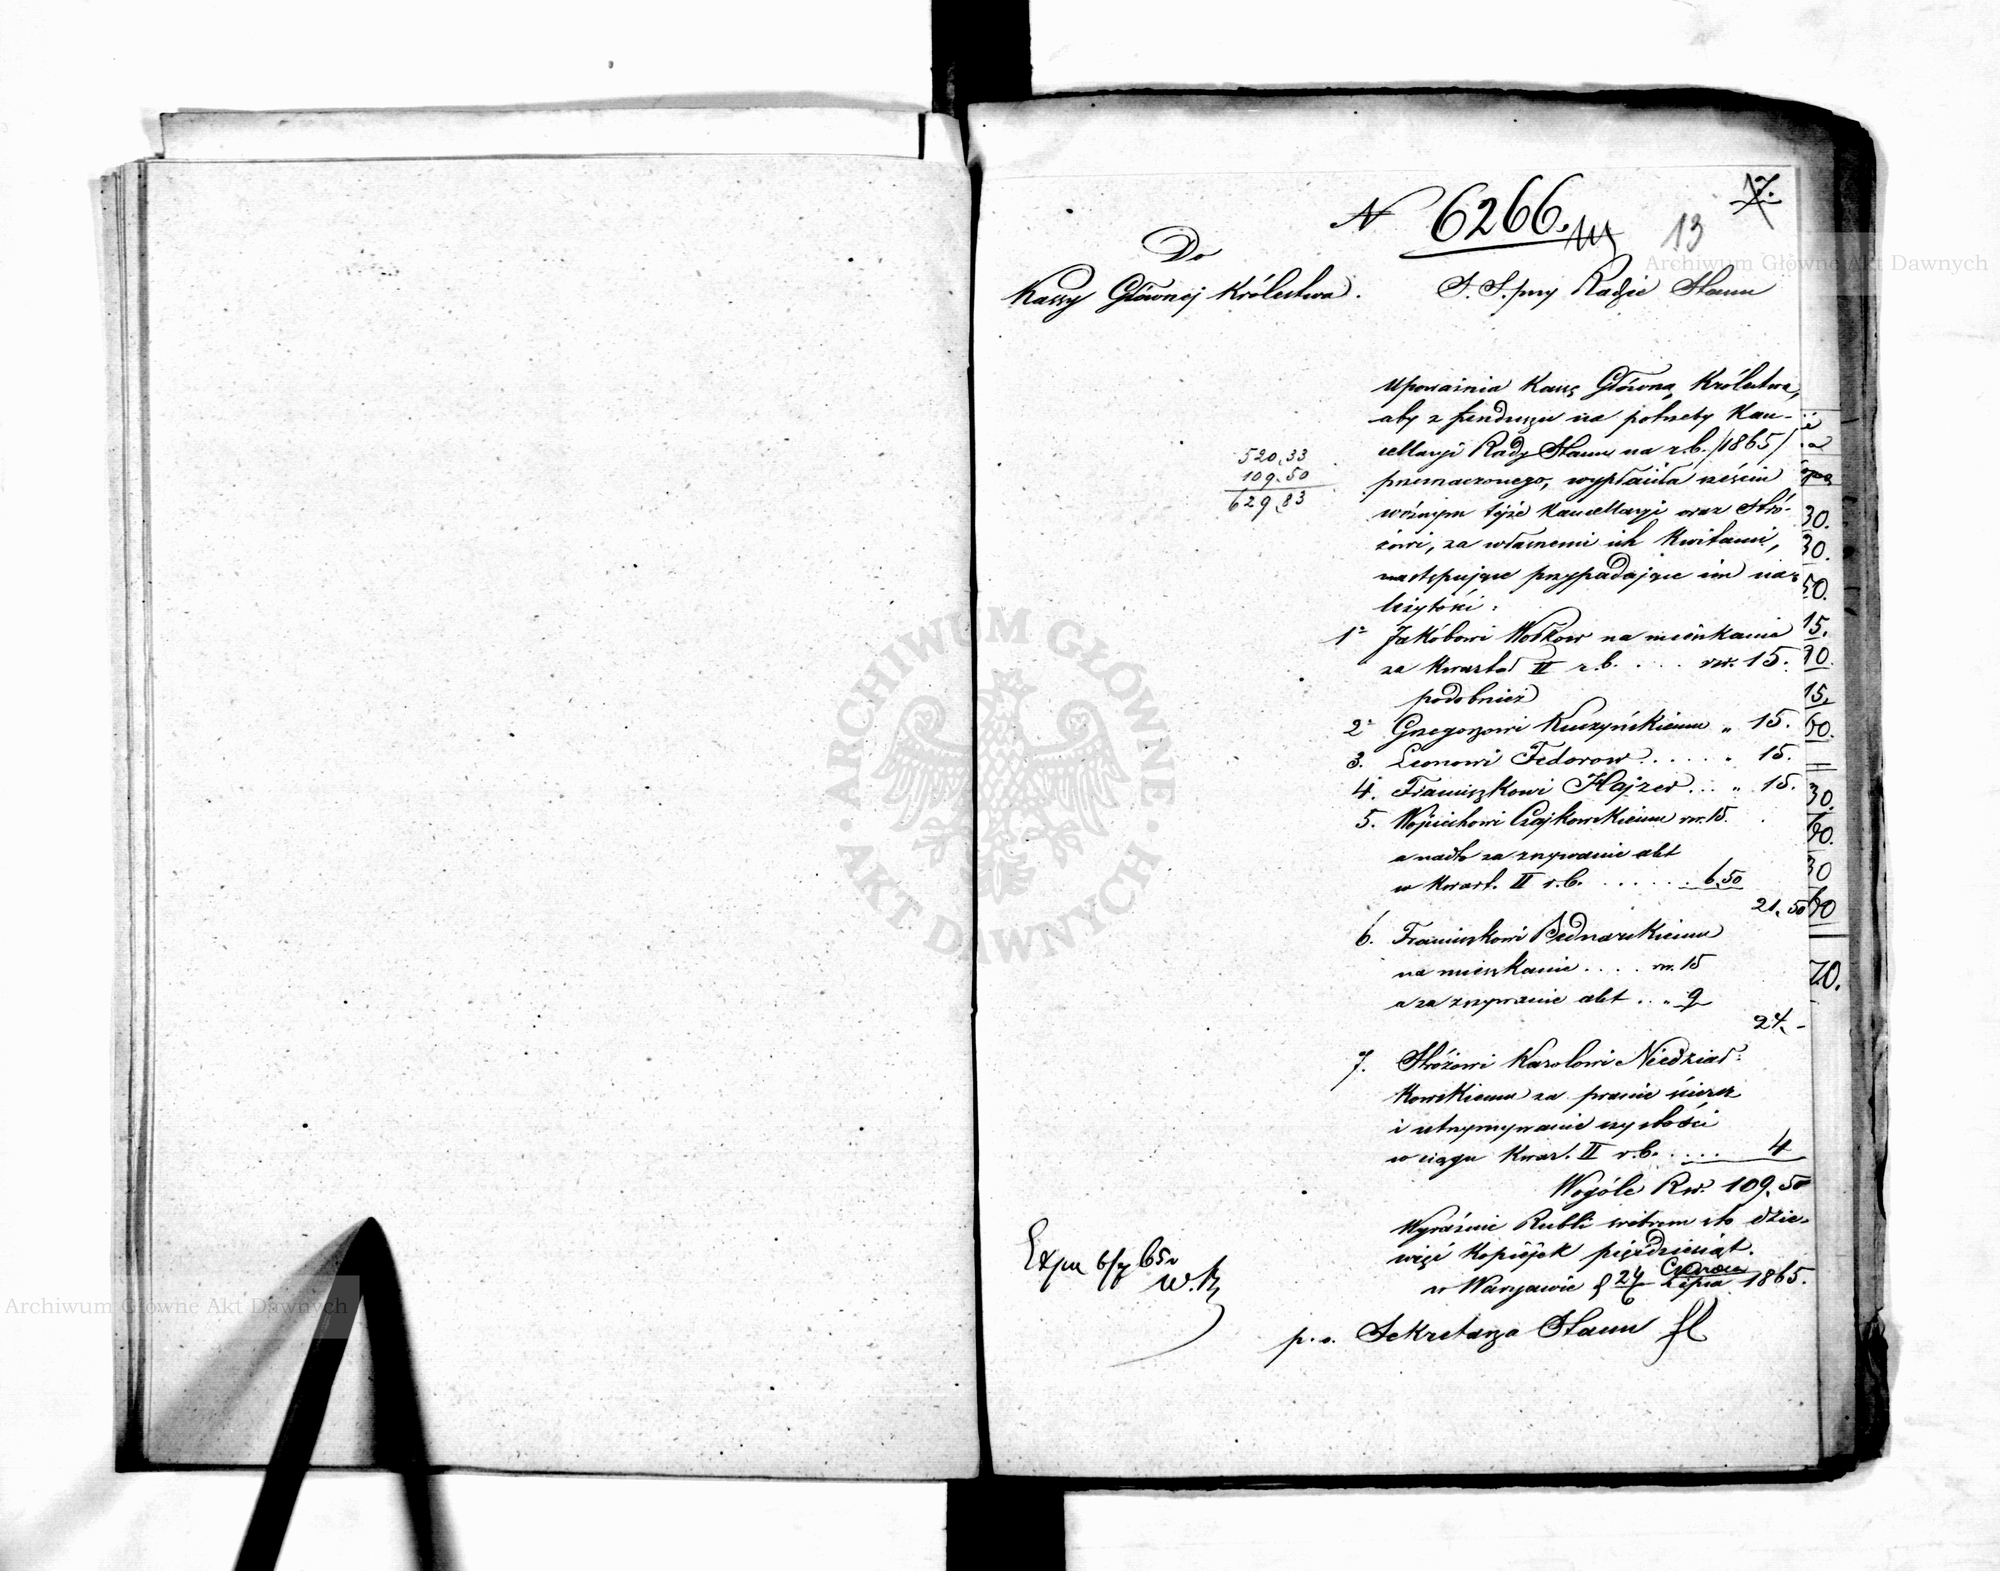 7.
N 6266.
13
Do
Kassy Głównéj Królestwa.
S. S. przy Radzie Stanu
Upoważnia Kassę Główną Królestwa,
aby z funduszu na potrzeby Kan-
cellaryi Rady Stanu na r.b. /1865/
przeznaczonego, wypłaciła sześciu
woźnym téjże Kancellaryi oraz Stró-
żowi, za własnemi ich Kwitami,
następujące przypadające im na-
leżytości:
520,33
109,50
629,83
1° Jakóbowi Wołkow na mieszkanie
za Kwartał II r.b. .... rsr. 15.
podobnież
2° Grzegorzowi Kuczyńskiemu „ 15.
3. Leonowi Fedorow ..... „ 15.
4. Franciszkowi Hajzer ... „ 15.
5. Wojciechowi Czajkowskiemu rsr. 15.
a nadto za zszywanie akt
w Kwart. II r.b. ...... 6,50
21,50
6. Franciszkowi Bednarskiemu
na mieszkanie .... rsr. 15
a za zszywanie akt .. „ 9
24,-
7. Stróżowi Karolowi Niedział-
kowskiemu za pranie ścierek
i utrzymywanie czystości
w ciągu Kwar. II r.b. .... 4
Wogóle Rsr. 109,50
Wyraźnie Rubli srebrem sto dzie-
więć Kopiejek pięćdziesiąt.
w Warszawie d 24/6 Czerwca/Lipca 1865.
p. o. Sekretarza Stanu
Exp. 6/7 65r
W.R.
30.
30.
50.
15.
90.
15.
60.
30.
60.
30
60
70.
ARCHIWUM GŁÓWNE AKT DAWNYCH
Archiwum Główne Akt Dawnych
Archiwum Główne Akt Dawnych